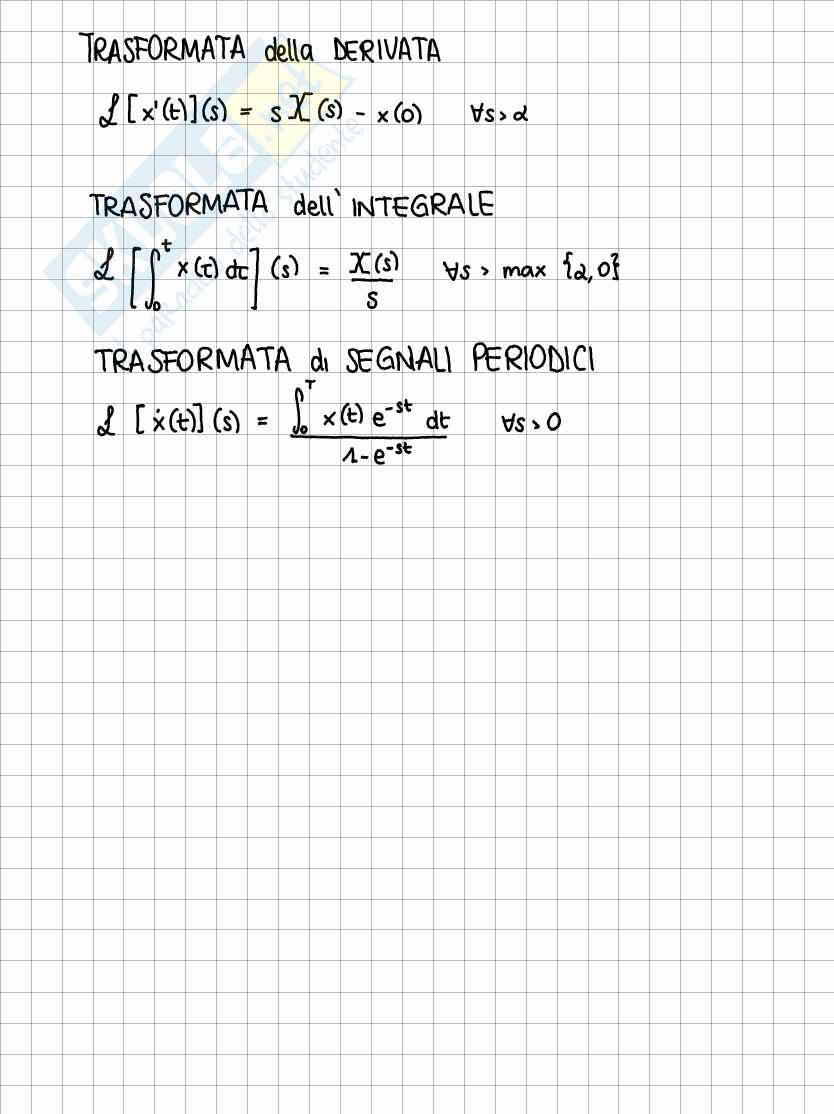 TRASFORMATA della DERIVATA
ℒ [x'(t)](s) = s X(s) - x(0) ∀s > α
TRASFORMATA dell' INTEGRALE
ℒ [∫₀ᵗ x(τ) dτ] (s) = X(s)/s ∀s > max {α, 0}
TRASFORMATA di SEGNALI PERIODICI
ℒ [ẋ(t)](s) = ∫₀ᵀ x(t) e^-st dt / 1-e^-st ∀s > 0
SKUOLA.net
dello studente